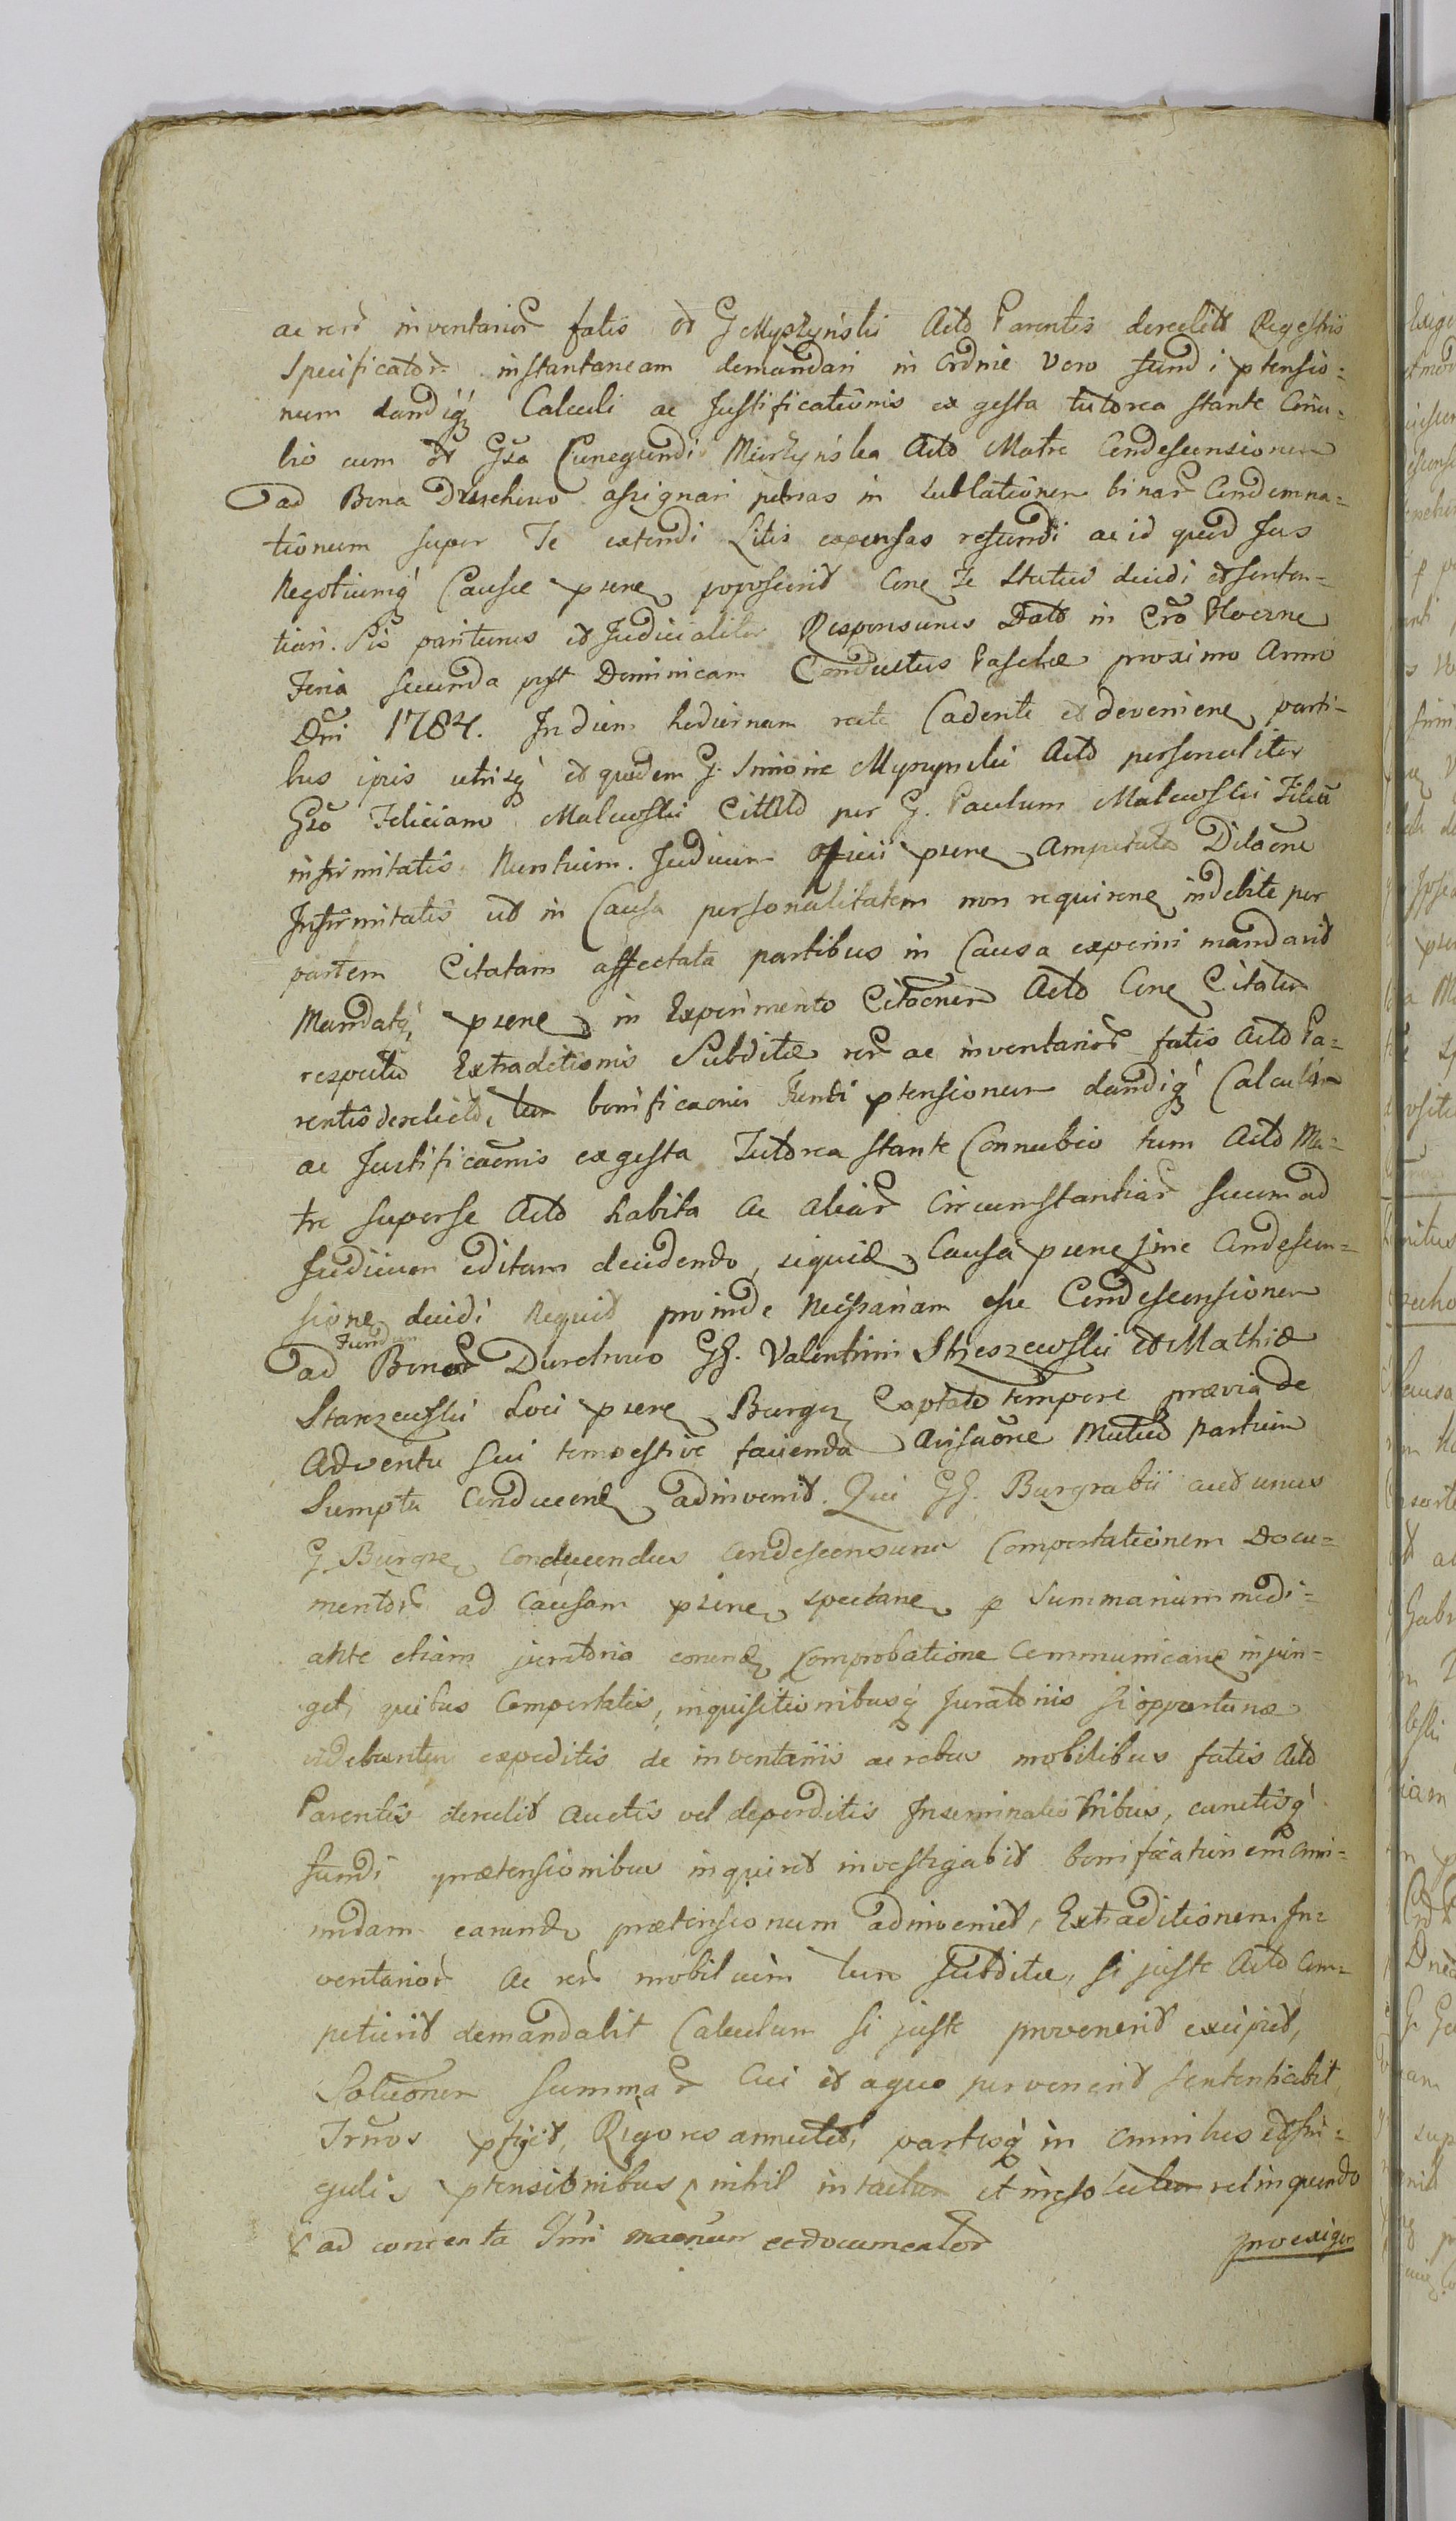 ac rerum inventarior fatis et G Myszyński Acto Parentis derelict Regestris
specificator instantaneam demandari in ordine vero fundi ptensio=
num dandiq Calculi ac Justificationis ex gesta tutorea stante Connu=
bio cum et Gsa Cunegundi Miszyńska Acto Matre Condescensionem
ad Bona Duschowo assignari in sublationem binar Condemna=
tionum super Te extendi Litis expensas refundi ac id quod Jus
Negotiumq Causae psene poposcerit Cone Te Statui decidi et senten=
tiari. Sis pariturus et Judicialiter Responsurus Dato in Cro
Feria secunda post Dominicam Conductus Paschae proximo Anno
Dni 1784. In diem hodiernam recte Cadente et deveniene parti=
bus ipsis utrisq et quidem G. Simone Myszyński Acto personaliter
Gso Feliciano Malewski Citto per G. Paulum Malewski Filiu
infirmitatis Nuntium. Judicium Officii psene Amputata Dilaone
Infirmitatis ut in Causa personalitatem non requirene indebite per
partem Citatam affectata partibus in Causa experiri mandavit
Mandatq psene in Experimento Citaonem Acto Cone Citatu
respectu Extraditionis Subditae rer ac inventarior fatis Acto Pa=
rentis derelicto, tum bonificaonis Fundi ptensionum dandiq Calculi
ac Justificaonis ex gesta Tutorea stante Connubio tum Acto Ma=
tre super se Acto habita ac aliar Circumstantiar secum ad
Judicium editam decidendo, siquid Causa psene sine Condescen=
sione decidi nequit proinde necessariam esse Condescensionem
Fundum
ad Bonor Durchowo GG. Valentini Strzeszewski et Mathiae
Starzewski Loci psene Burgr Captato tempore praevia de
Adventu sui tempestive facienda Avisaone Mutuo partium
Sumptu Conducene adinvenit. Qui GG. Burgrabii aut unus
G Burgr Conducendus Condescensuru Comportationem Docu=
mentor ad Causam psene spectane p Summarium medi=
ante etiam juratoria eorund Comprobatione Communicane injun=
get, quibus Comportatis, inquisitionibusq Juratoriis si opportunae
videbuntur expeditis de inventariis ac rebus mobilibus fatis Acto
Parentis derelict auctis vel deperditis Inseminatis tribus, cunctisq
fundi praetensionibus inquiret investigabit bonificationem omni=
modam earund praetensionum adinveniet, Extraditionem In=
ventarior ac rer mobilium tum subditae, si juste Acto Com=
petierit demandabit Calculum si juste provenerit excipiet,
Soluonem summar Cui et a quo pervenerit sententiabit
Trnos pfiget, Rigores annectet, partesq in omnibus et sin=
gulis ptensionibus nihil intactum et insolutum relinquendo
ad contenta et documentor proexigen